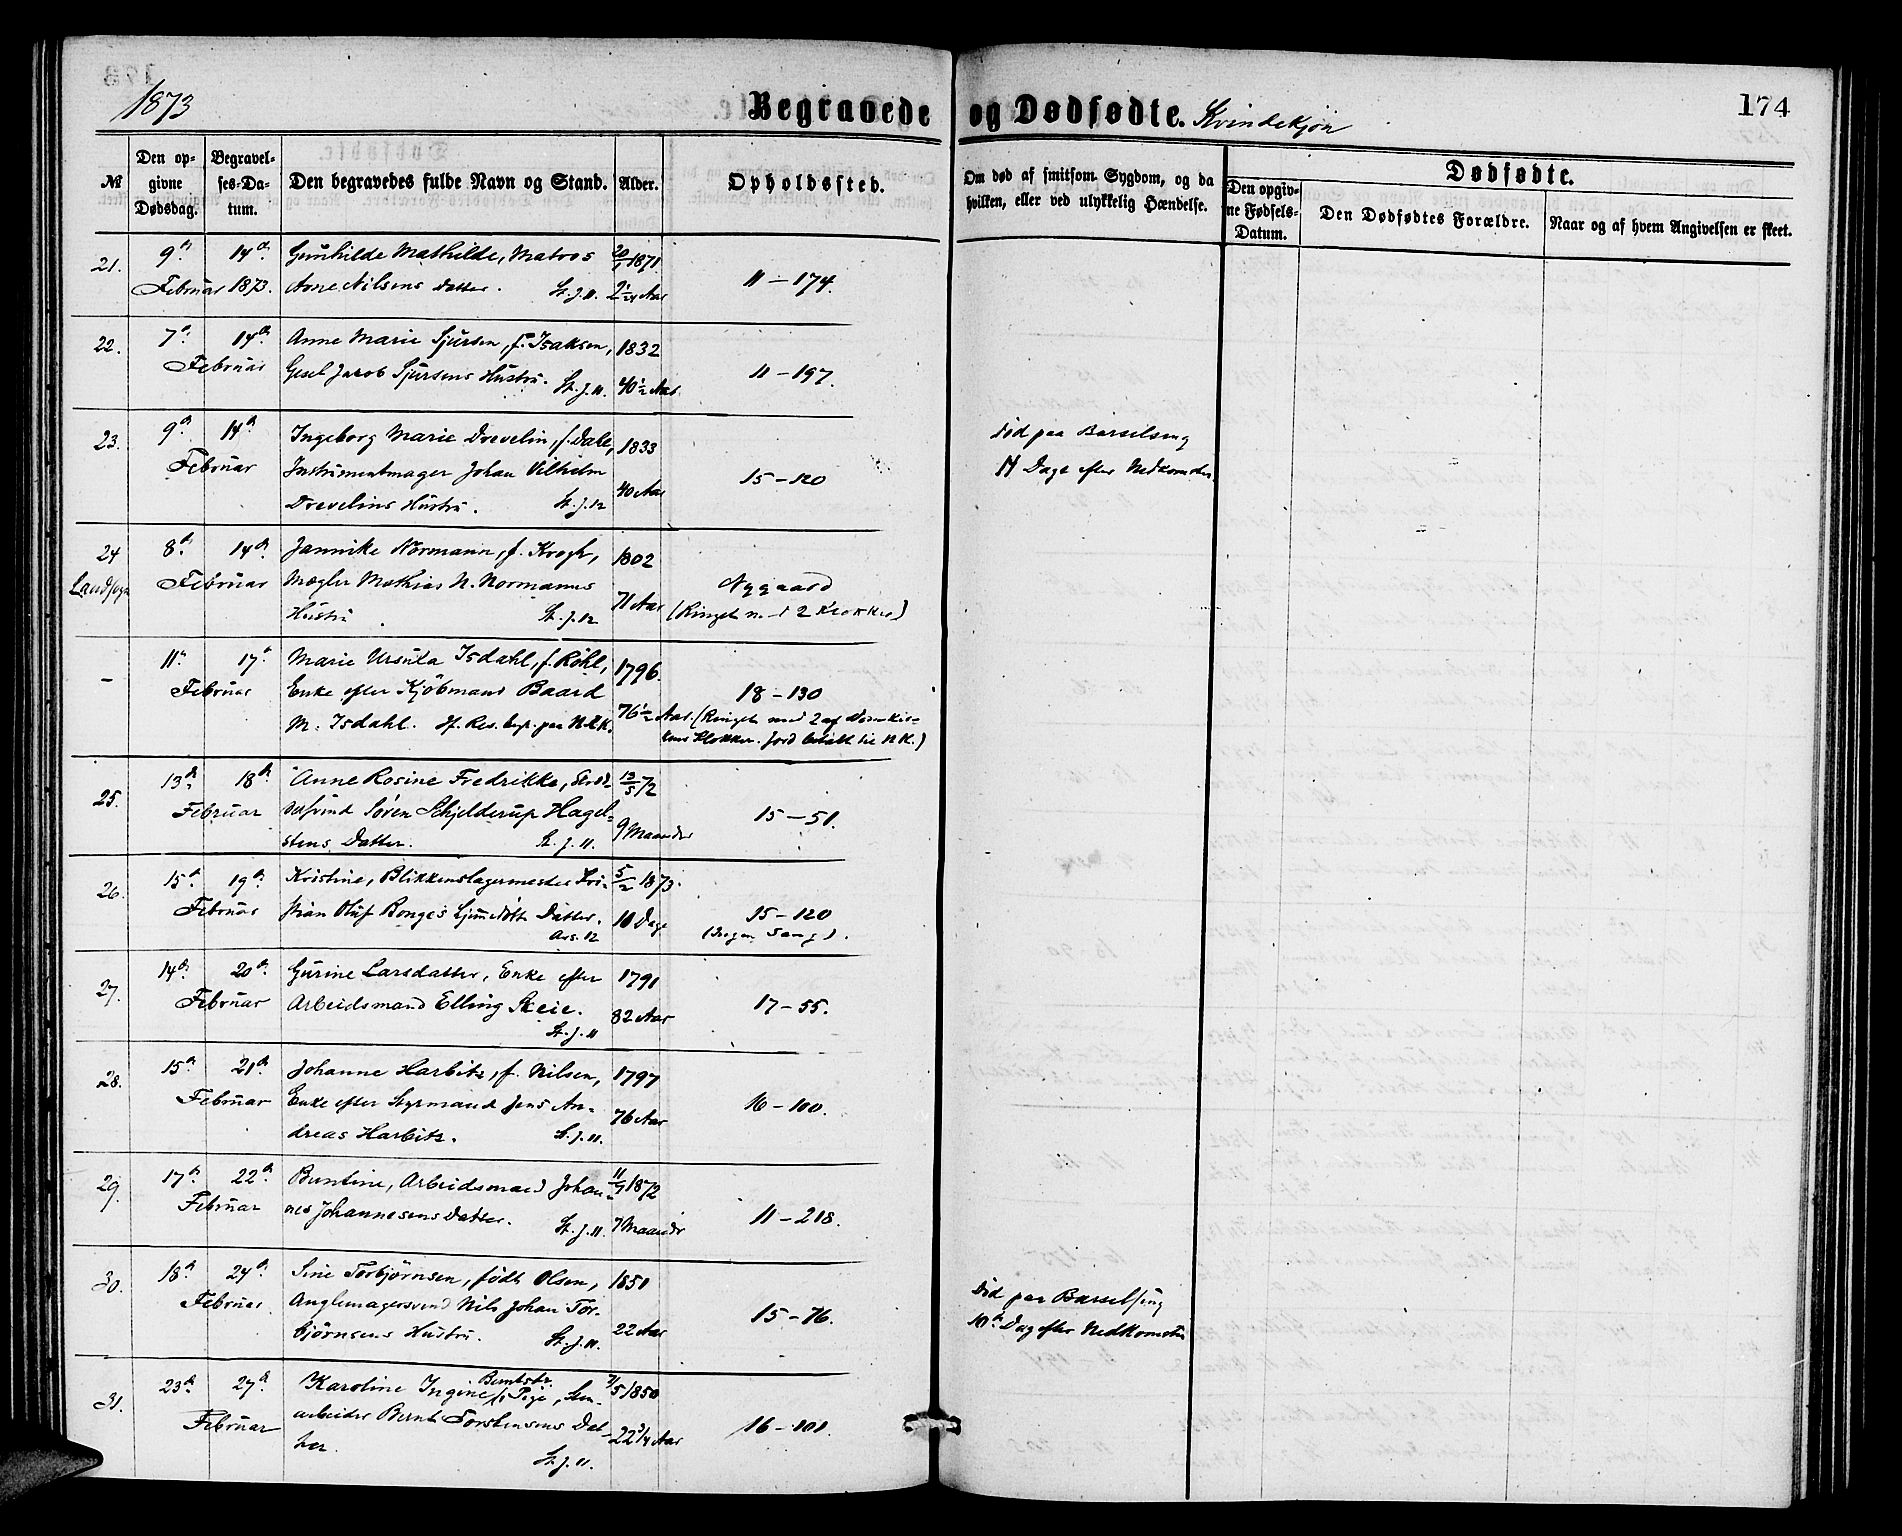 1873
Begravede og Dødfødte. Kvindekjøn
174
№
Den op-
givne
Dødsdag.
Begravel-
ses-Da-
tum.
Den begravedes fulde Navn og Stand.
Alder.
Opholdssted.
Om død af smitsom Sygdom, og da
hvilken, eller ved ulykkelig Hændelse.
Dødfødte.
Den opgiv-
ne Fødsels-
Datum.
Den Dødfødtes Forældre.
Naar og af hvem Angivelsen er skeet.
21.
9de 14de Gunhilde Mathilde, Matros 1871
Februar 1873. Arne Nilsens Datter. St. J. 11. 2 1/24 Aar
11 – 174.
22.
7de 14de Anne Marie Sjursen, f. Isaksen, 1832
Februar Gesel Jacob Sjursens Hustru. St. J. 11. 40 1/2 Aar.
11 – 197.
23.
9de 14de Ingeborg Marie Drevelin, f. Dale, 1833
Februar Instrumentmager Johan Vilhelm
Drevelins Hustru. St. J. 12 40 Aar
15 – 120
Død paa Barselseng
14 Dage efter Nedkomsten.
24
Landsogn
8de 14de Jannike Normann, f. Krogh, 1802
Februar Mægler Mathias N. Normanns
Hustru St. J. 12 71 Aar
Nygaard
(Ringet m. 2 Klokker)
–
11te 17de Marie Ursula Isdahl, f. Röhl, 1796.
Februar Enke efter Kjöbmand Baard
M. Isdahl. 76 1/2 Aar.
18 – 130
(Ringet med 2 af Domkir-
kens Klokker. Jord betalt til N.K.)
25.
13de 18de Anne Rosine Fredrikke, 13/5 72
Februar Søren Schjelderup Hagel-
stens Datter. St. J. 11. 9 Maaneder
15 – 51.
26.
15de 19de Kristine, Blikkenslagermester Kri- 5/2 1873.
Februar stian Oluf Ronges hjemedøbt Datter. 10 Dage
Ass. 12
15 – 120
(Ingen Sang).
27.
14de 20de Gurine Larsdatter, Enke efter 1791
Februar Arbeidsmand Elling Skeie. 82 Aar
St. J. 11
17 – 55.
28.
15de 21de Johanne Harbitz, f. Nilsen, 1797
Februar Enke efter Styrmand Jens An-
dreas Harbitz. St. J. 11. 76 Aar
16 – 100.
29.
17de 22de Bentine, Arbeidsmand Johan- 11/7 1872
Februar nes Johannesens Datter. St. J. 11. 7 Maander
11 – 218.
30.
18de 24de Sine Torbjørnsen, født Olsen, 1850
Februar Anglemagersvend Nils Johan Tor-
bjørnsens Hustru. St. J. 11. 22 Aar
15 – 76.
Død paa Barselseng
10de Dag efter Nedkomsten
31.
23de 27de Karoline Ingine Berntsdtr, Pige, 7/5 1850
Februar arbeider Bernt Torstensens Dat-
ter. St. J. 11. 22 3/4 Aar
16 – 101.